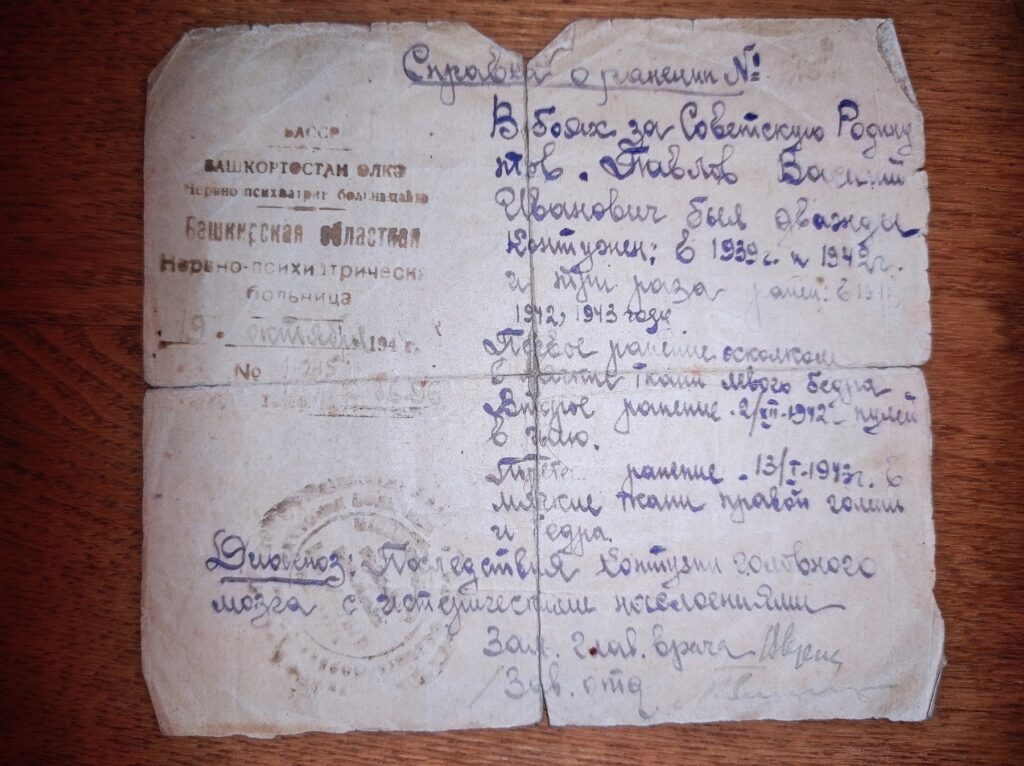 Справка о ранении №
БАССР
БАШКОРТОСТАН ӨЛКӘ
Нервно психиатрик больницаһы
Башкирская областная
Нервно-психиатрическая
больница
19. октября 194 г.
№ 1235
Телеф.
В боях за Советскую Родину
тов. Павлов Василий
Иванович был дважды
контужен: в 1939 г. и 1942 г.
и три раза ранен: в
1942, 1943 году.
Первое ранение осколком
в мягкие ткани левого бедра
Второе ранение 2/XII-1942 пулей
в
Третье ранение 13/I-1943 г. в
мягкие ткани правой голени
и бедра.
Диагноз: Последствия контузии головного
мозга с истерическими наслоениями
Зам. глав. врача
Зав. отд